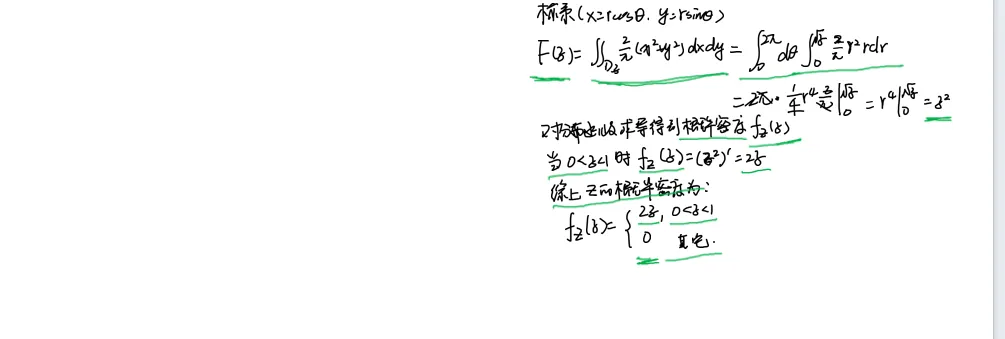 标系(x=rcosθ. y=rsinθ)
F(z)=∬_{D_z} 2/π (x²+y²)dxdy = ∫_0^{2π} dθ ∫_0^{√z} 2/π r² r dr
=2π·1/4 r⁴ 2/π |_0^{√z} = r⁴|_0^{√z} = z²
求导得到概率密度 f_Z(z)
当 0<z<1 时 f_Z(z)=(z²)'=2z
综上 Z的概率密度为:
f_Z(z)= { 2z, 0<z<1
0 其它.